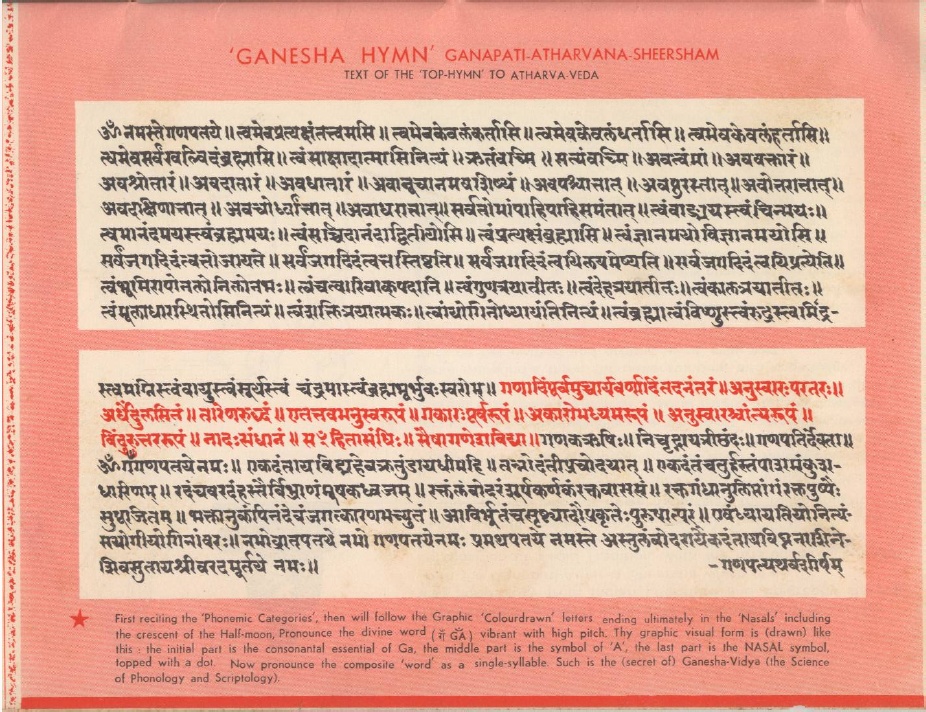 'GANESHA HYMN' GANAPATI-ATHARVANA-SHEERSHAM
TEXT OF THE 'TOP-HYMN' TO ATHARVA-VEDA
ॐ नमस्तेगणपतये ॥ त्वमेवप्रत्यक्षंतत्त्वमसि ॥ त्वमेवकेवलंकर्तासि ॥ त्वमेवकेवलंधर्तासि ॥ त्वमेवकेवलंहर्तासि ॥
त्वमेवसर्वंखल्विदंब्रह्मासि ॥ त्वंसाक्षादात्मासिनित्यं ॥ ऋतंवच्मि ॥ सत्यंवच्मि ॥ अवत्वंमां ॥ अववक्तारं ॥
अवश्रोतारं ॥ अवदातारं ॥ अवधातारं ॥ अवानूचानमवशिष्यं ॥ अवपश्चात्तात् ॥ अवपुरस्तात् ॥ अवोत्तरात्तात् ॥
अवदक्षिणात्तात् ॥ अवचोर्ध्वात्तात् ॥ अवाधरात्तात् ॥ सर्वतोमांपाहिपाहिसमंतात् ॥ त्वंवाङ्मयस्त्वंचिन्मयः ॥
त्वमानंदमयस्त्वंब्रह्ममयः ॥ त्वंसच्चिदानंदाद्वितीयोसि ॥ त्वंप्रत्यक्षंब्रह्मासि ॥ त्वंज्ञानमयोविज्ञानमयोसि ॥
सर्वंजगदिदंत्वत्तोजायते ॥ सर्वंजगदिदंत्वत्तस्तिष्ठति ॥ सर्वंजगदिदंत्वयिलयमेष्यति ॥ सर्वंजगदिदंत्वयिप्रत्येति ॥
त्वंभूमिरापोनलोनिलोनभः ॥ त्वंचत्वारिवाक्पदानि ॥ त्वंगुणत्रयातीतः ॥ त्वंदेहत्रयातीतः ॥ त्वंकालत्रयातीतः ॥
त्वंमूलाधारस्थितोसिनित्यं ॥ त्वंशक्तित्रयात्मकः ॥ त्वांयोगिनोध्यायंतिनित्यं ॥ त्वंब्रह्मात्वंविष्णुस्त्वंरुद्रस्त्वमिंद्र-
स्त्वमग्निस्त्वंवायुस्त्वंसूर्यस्त्वं चंद्रमास्त्वंब्रह्मभूर्भुवःस्वरोम् ॥ गणादिंपूर्वमुच्चार्यवर्णादिंतदनंतरं ॥ अनुस्वारःपरतरः ॥
अर्धेंदुलसितं ॥ तारेणरुद्धं ॥ एतत्तवमनुस्वरूपं ॥ गकारःपूर्वरूपं ॥ अकारोमध्यमरूपं ॥ अनुस्वारश्चांत्यरूपं ॥
बिंदुरुत्तररूपं ॥ नादःसंधानं ॥ सꣳहितासंधिः ॥ सैषागणेशविद्या ॥ गणकऋषिः ॥ निचृद्गायत्रीछंदः ॥ गणपतिर्देवता ॥
ॐ गँगणपतयेनमः ॥ एकदंतायविद्महेवक्रतुंडायधीमहि ॥ तन्नोदंतीप्रचोदयात् ॥ एकदंतंचतुर्हस्तंपाशमंकुश-
धारिणम् ॥ रदंचवरदंहस्तैर्बिभ्राणंमूषकध्वजम् ॥ रक्तंलंबोदरंशूर्पकर्णकंरक्तवाससं ॥ रक्तगंधानुलिप्तांगंरक्तपुष्पैः
सुपूजितम् ॥ भक्तानुकंपिनंदेवंजगत्कारणमच्युतं ॥ आविर्भूतंचसृष्ट्यादौप्रकृतेःपुरुषात्परं ॥ एवंध्यायतियोनित्यं-
सयोगीयोगिनांवरः ॥ नमोव्रातपतये नमो गणपतयेनमः प्रमथपतये नमस्ते अस्तुलंबोदरायैकदंतायविघ्ननाशिने-
शिवसुतायश्रीवरदमूर्तये नमः ॥
-गणपत्यथर्वशीर्षम्
First reciting the 'Phonemic Categories', then will follow the Graphic 'Colourdrawn' letters ending ultimately in the 'Nasals' including
the crescent of the Half-moon, Pronounce the divine word (गँ GÃ) vibrant with high pitch. Thy graphic visual form is (drawn) like
this : the initial part is the consonantal essential of Ga, the middle part is the symbol of 'A', the last part is the NASAL symbol,
topped with a dot. Now pronounce the composite 'word' as a single-syllable. Such is the (secret of) Ganesha-Vidya (the Science
of Phonology and Scriptology).